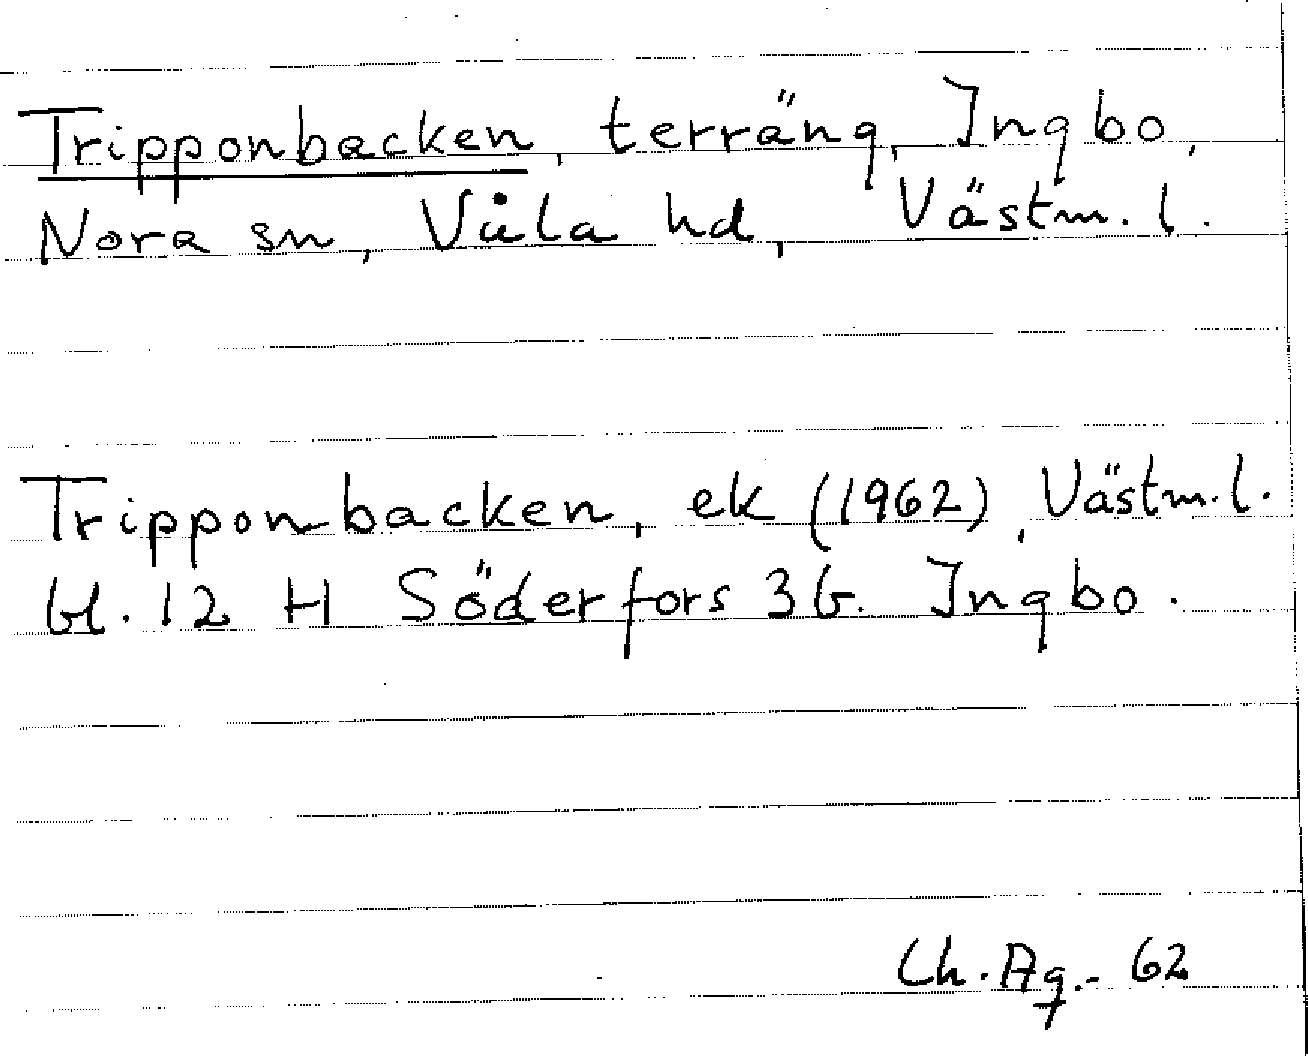 Tripponbacken, terräng, Ingbo,
Nora sn, Våla hd, Västm. l.
Tripponbacken, ek (1962), Västm. l.
bl. 12 H Söderfors 3b. Ingbo.
Ch. Ag. - 62